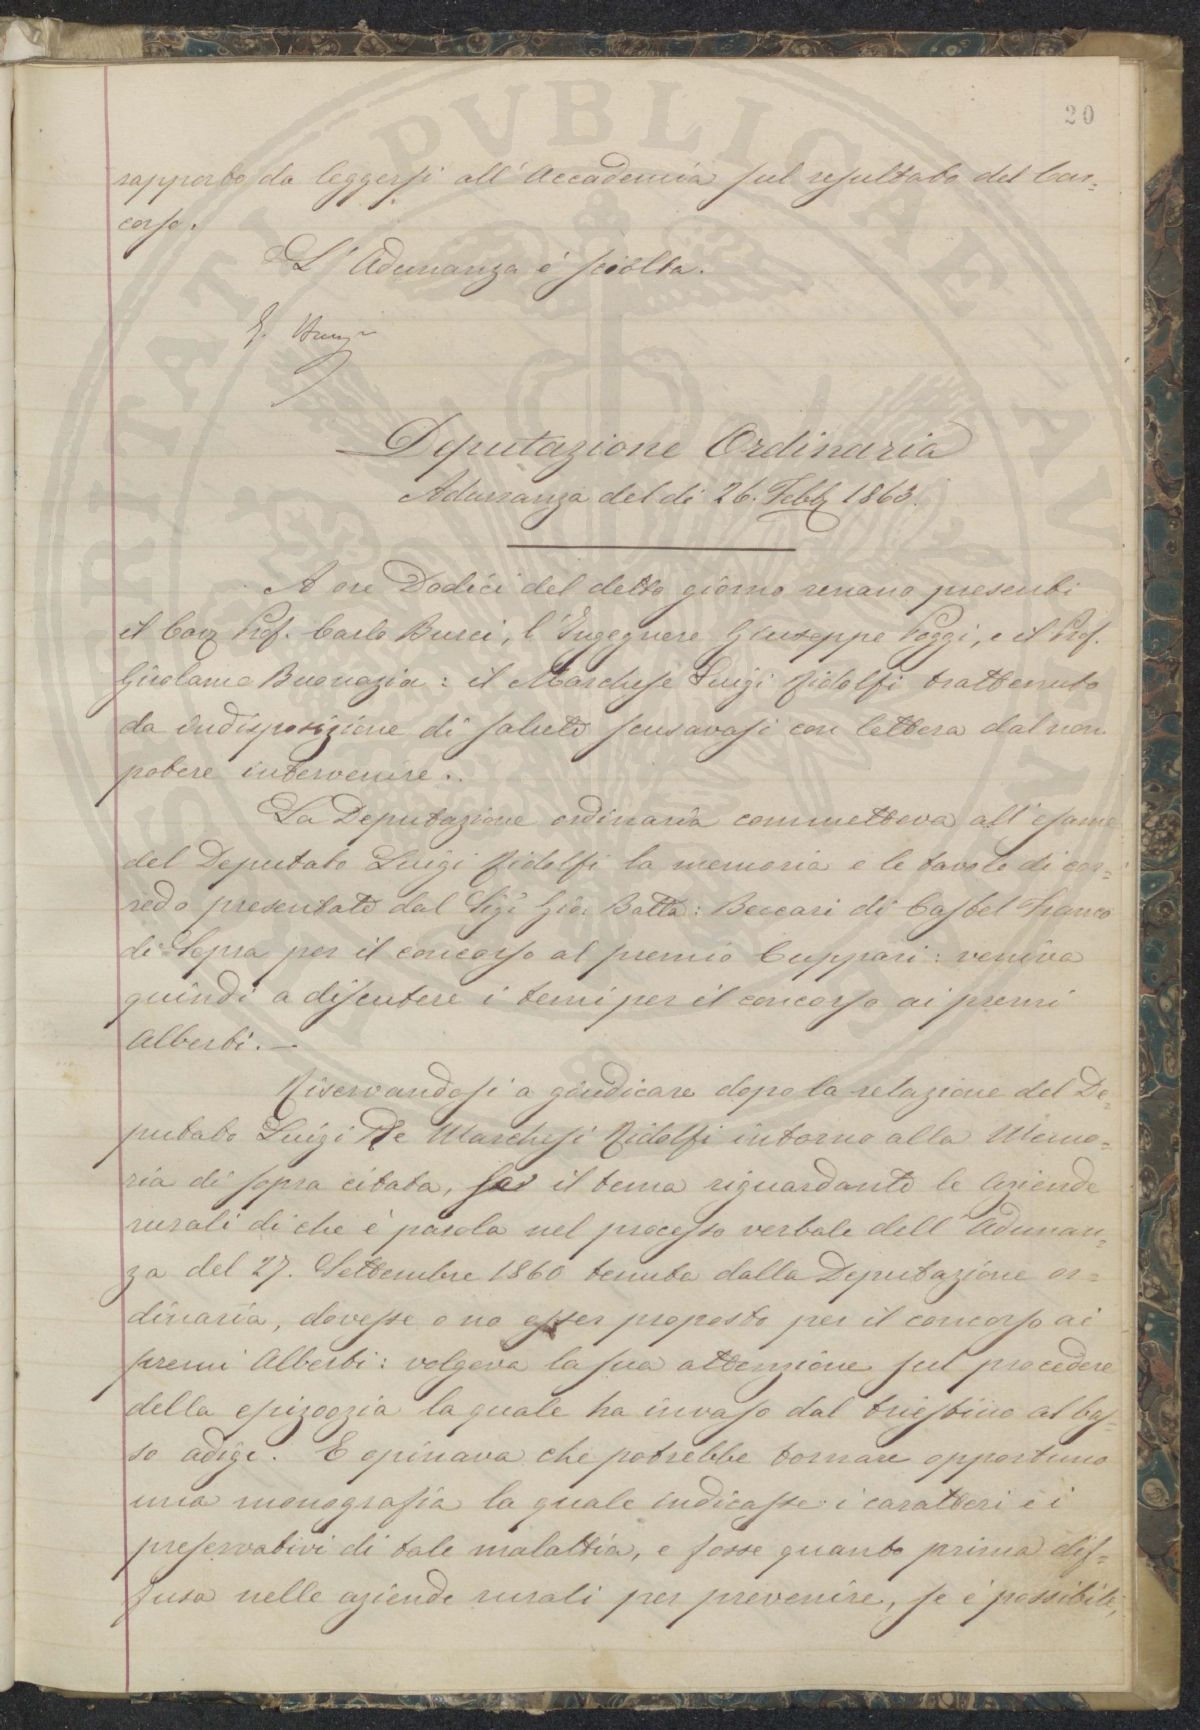 20
rapporto da leggersi all'Accademia sul resultato del Con=
corso.
L'Adunanza è sciolta.
Deputazione Ordinaria
Adunanza del dì 26. Febb 1863.
A ore Dodici del detto giorno erano presenti
il Cav Prof. Carlo Burci, l'Ingegnere Giuseppe Poggi, e il Prof.
Girolamo Buonazia: il Marchese Luigi Ridolfi trattenuto
da indisposizione di salute scusavasi con lettera dal non
potere intervenire.
La Deputazione ordinaria commetteva all'esame
del Deputato Luigi Ridolfi la memoria e le tavole di cor=
redo presentate dal Sig. Gio. Batta: Beccari di Castel Franco
di Sopra per il concorso al premio Cuppari: veniva
quindi a discutere i temi per il concorso ai premi
Alberti. —
Riservandosi a giudicare dopo la relazione del De=
putato Luigi De Marchesi Ridolfi intorno alla Memo=
ria di sopra citata, se il tema riguardante le Aziende
rurali di che è parola nel processo verbale dell'Adunan=
za del 27. Settembre 1860 tenuta dalla Deputazione or=
dinaria, dovesse o no esser proposto per il concorso ai
premi Alberti: volgeva la sua attenzione sul procedere
della epizoozia la quale ha invaso dal triestino al bas=
so adige. E opinava che potrebbe tornare opportuno
una monografia la quale indicasse i caratteri e i
preservativi di tale malattia, e fosse quanto prima dif=
fusa nelle aziende rurali per prevenire, se è possibile,
PVBLICAE